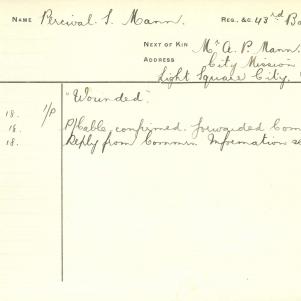 NAME Percival S. Mann. REG. &C. 43rd Ba
NEXT OF KIN Mr A. P. Mann.
ADDRESS City Mission
Light Square City.
"Wounded".
18. 1/P P/Cable, confirmed. forwarded Com
18. Reply from Commn. Information se
18.